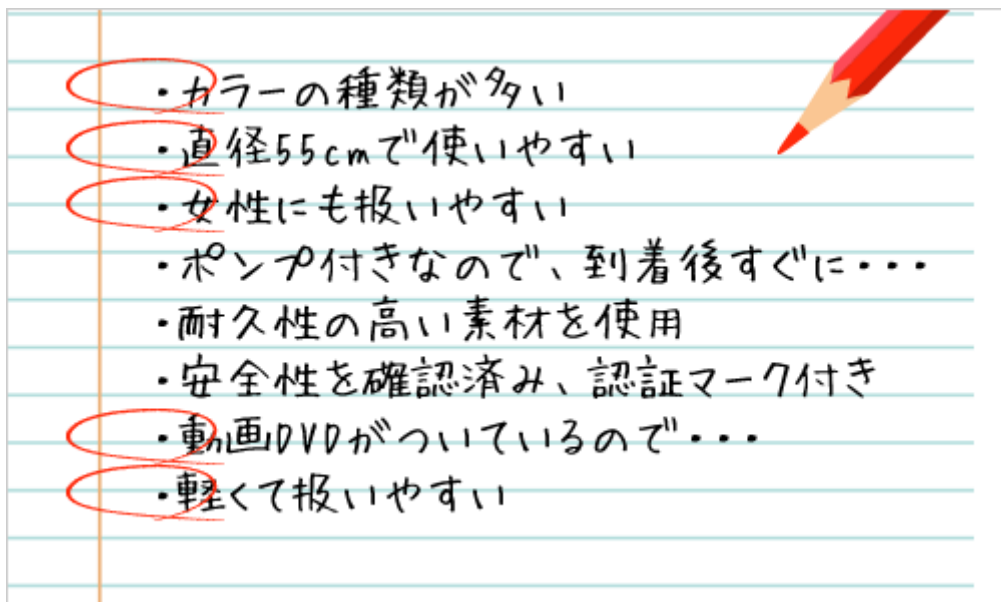 ・カラーの種類が多い
・直径55cmで使いやすい
・女性にも扱いやすい
・ポンプ付きなので、到着後すぐに・・・
・耐久性の高い素材を使用
・安全性を確認済み、認証マーク付き
・動画DVDがついているので・・・
・軽くて扱いやすい